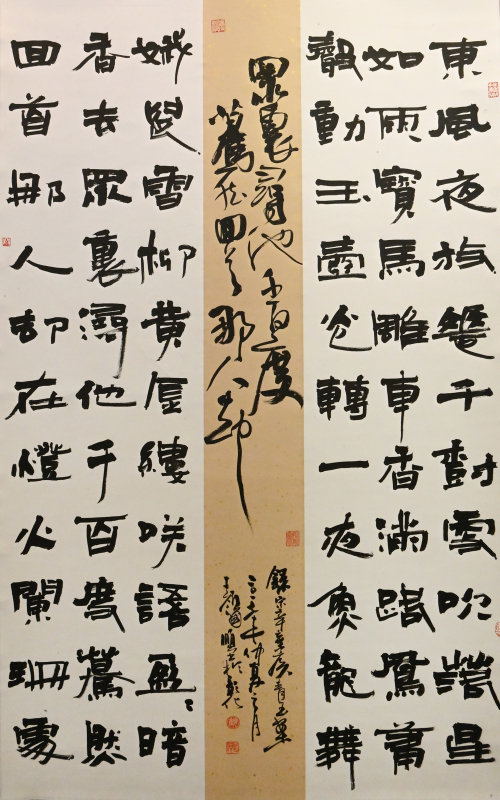 東風夜放花千樹雪吹星
如雨寶馬雕車香滿路鳳簫
聲動玉壺光轉一夜魚龍舞
眾裏尋他千百度
驀然回首那人却
錄宋辛棄疾青玉案
仲春之月
國鵬
蛾兒雪柳黃金縷咲語盈〻暗
香去眾裏潯他千百度驀然
回首那人却在燈火闌珊處